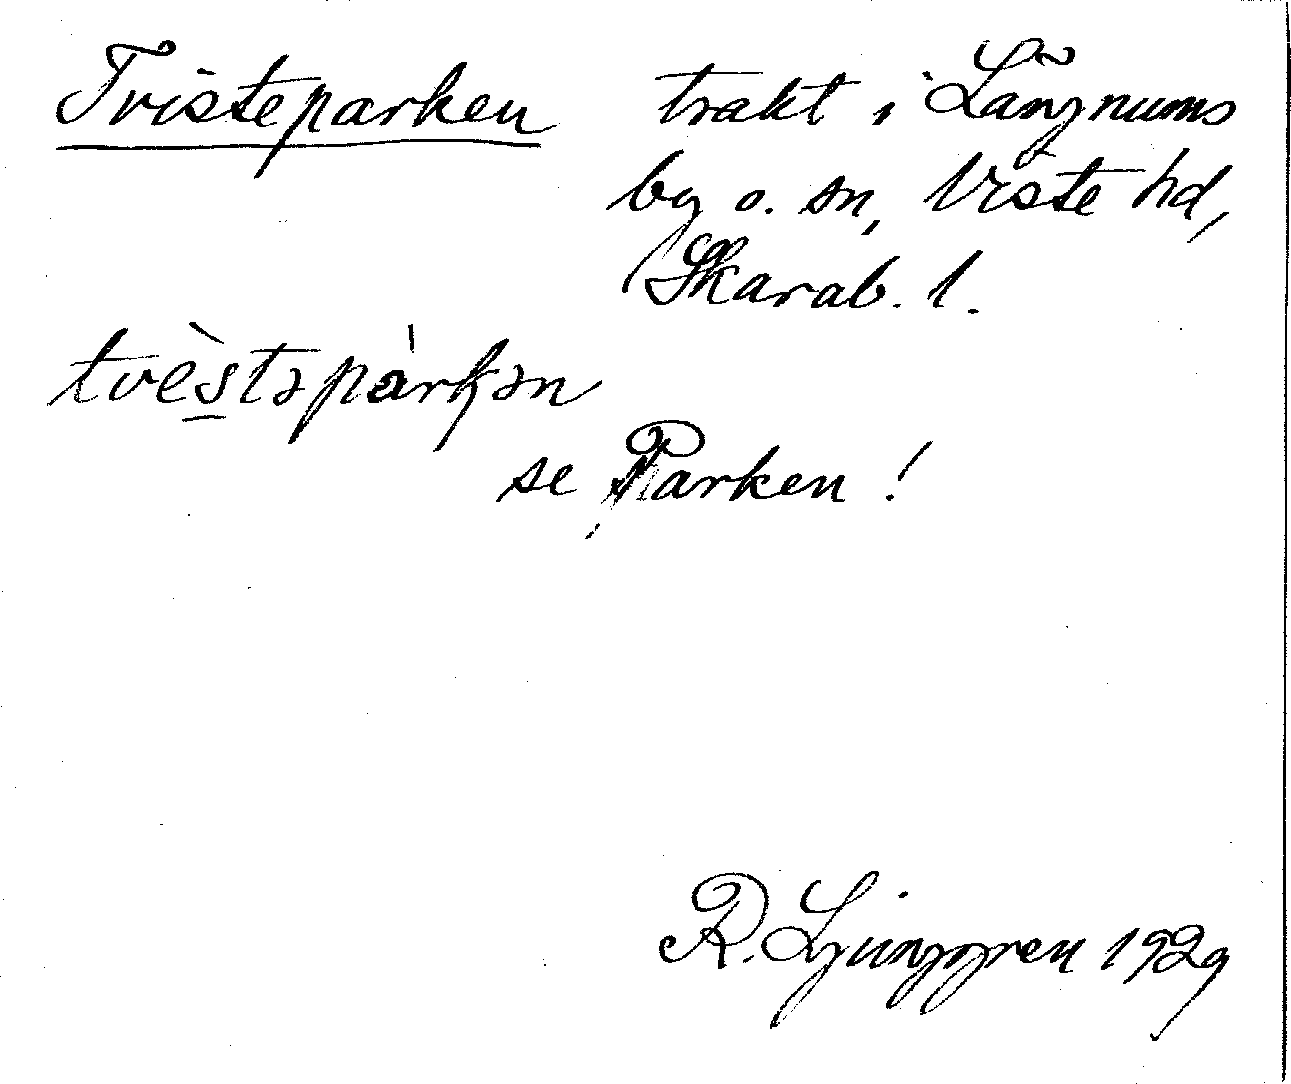 Tvisteparken trakt i Långnums
by o. sn, Viste hd,
Skarab. l.
tvès̠təpàrkən
se Parken !
R. Ljunggren 1929